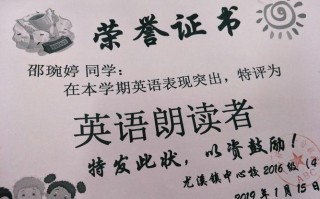 荣誉证书
邵琬婷 同学:
在本学期英语表现突出，特评为
英语朗读者
特发此状，以资鼓励！
尤溪镇中心校2016级（4
2019年1月15日
ABC